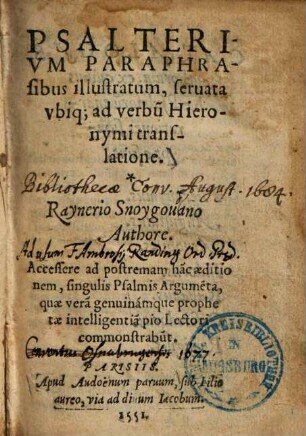 PSALTERI-
VM PARAPHRA-
sibus illustratum, seruata
vbiq; ad verbũ Hiero-
nymi trans-
latione.
*
Bibliothecæ Conv. August. 1684.
Raynerio Snoygoudano
Authore.
Ad usum F. Ambrosij Ord
Accessere ad postremam hãc æditio
nem, singulis Psalmis Argumẽta,
quæ verã genuinámque prophe
tæ intelligentiã pio Lectori
commonstrabũt.
Conventus 1677
PARISIIS.
Apud Audoënum paruum, sub Lilio
aureo, via ad diuum Iacobum.
1551.
KREISBIBLIOTHEK
IN
AUGSBURG